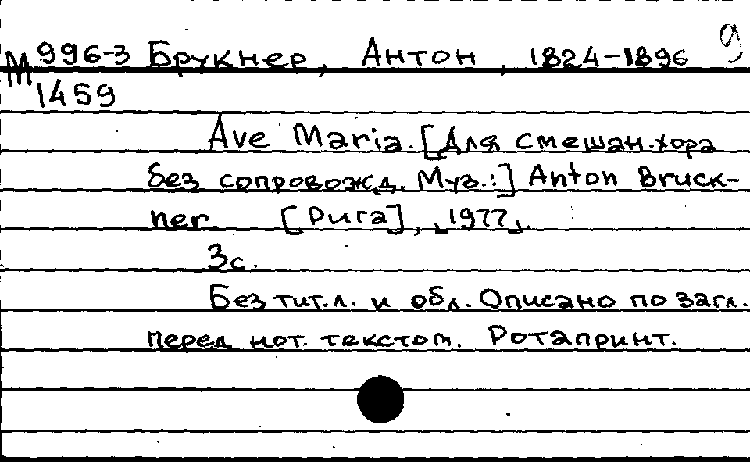 М 996-3 Брукнер, Антон, 1824-1896 9
1459
Ave Maria. [Для смешан. хора
без сопровожд. Муз.:] Anton Bruck-
ner. [Рига], 1977.
3с.
Без тит.л. и обл. Описано по загл.
перед нот. текстом. Ротапринт.